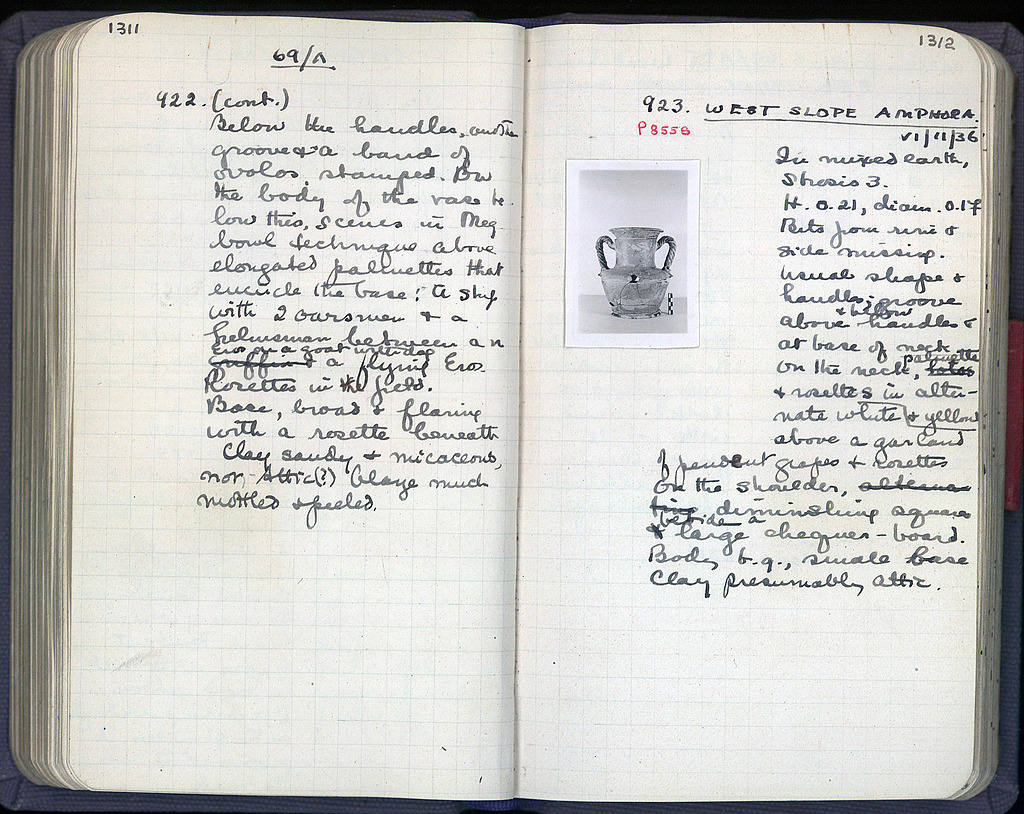 1311
69/Λ
922. (cont.)
Below the handles, another
groove & a band of
ovolos, stamped. On
the body of the vase be-
low this, scenes in Meg.
bowl technique above
elongated palmettes that
encircle the base: a ship
with 2 oarsmen & a
helmsman between an
Eros on a goat with dog
griffin & a flying Eros.
Rosettes in the field.
Base, broad & flaring
with a rosette beneath
Clay sandy & micaceous,
non-Attic(?) Glaze much
mottled & peeled.
1312
923. WEST SLOPE AMPHORA.
P8558
VI/11/36
In mixed earth,
Strosis 3.
H. 0.21, diam. 0.17
Bits from rim &
side missing.
Usual shape &
handles; groove
& below
above handles &
at base of neck.
palmettes
On the neck, lotus
& rosettes in alter-
nate white & yellow
above a garland
of pendent grapes & rosettes
On the shoulder, alterna-
ting diminishing squares
beside a
& large chequer-board.
Body b.g., small base
Clay presumably Attic.